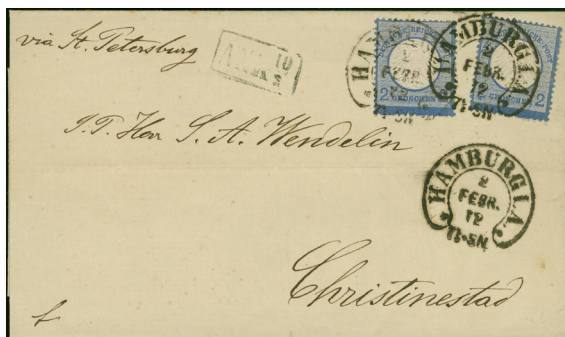 via St. Petersburg
HAMBURG I.A.
2
FEBR.
72
HAMBURG I.A.
2
FEBR.
72
2
GROSCHEN
2
S. T. Herr S. A. Wendelin
HAMBURG I.A.
2
FEBR.
72
Christinestad